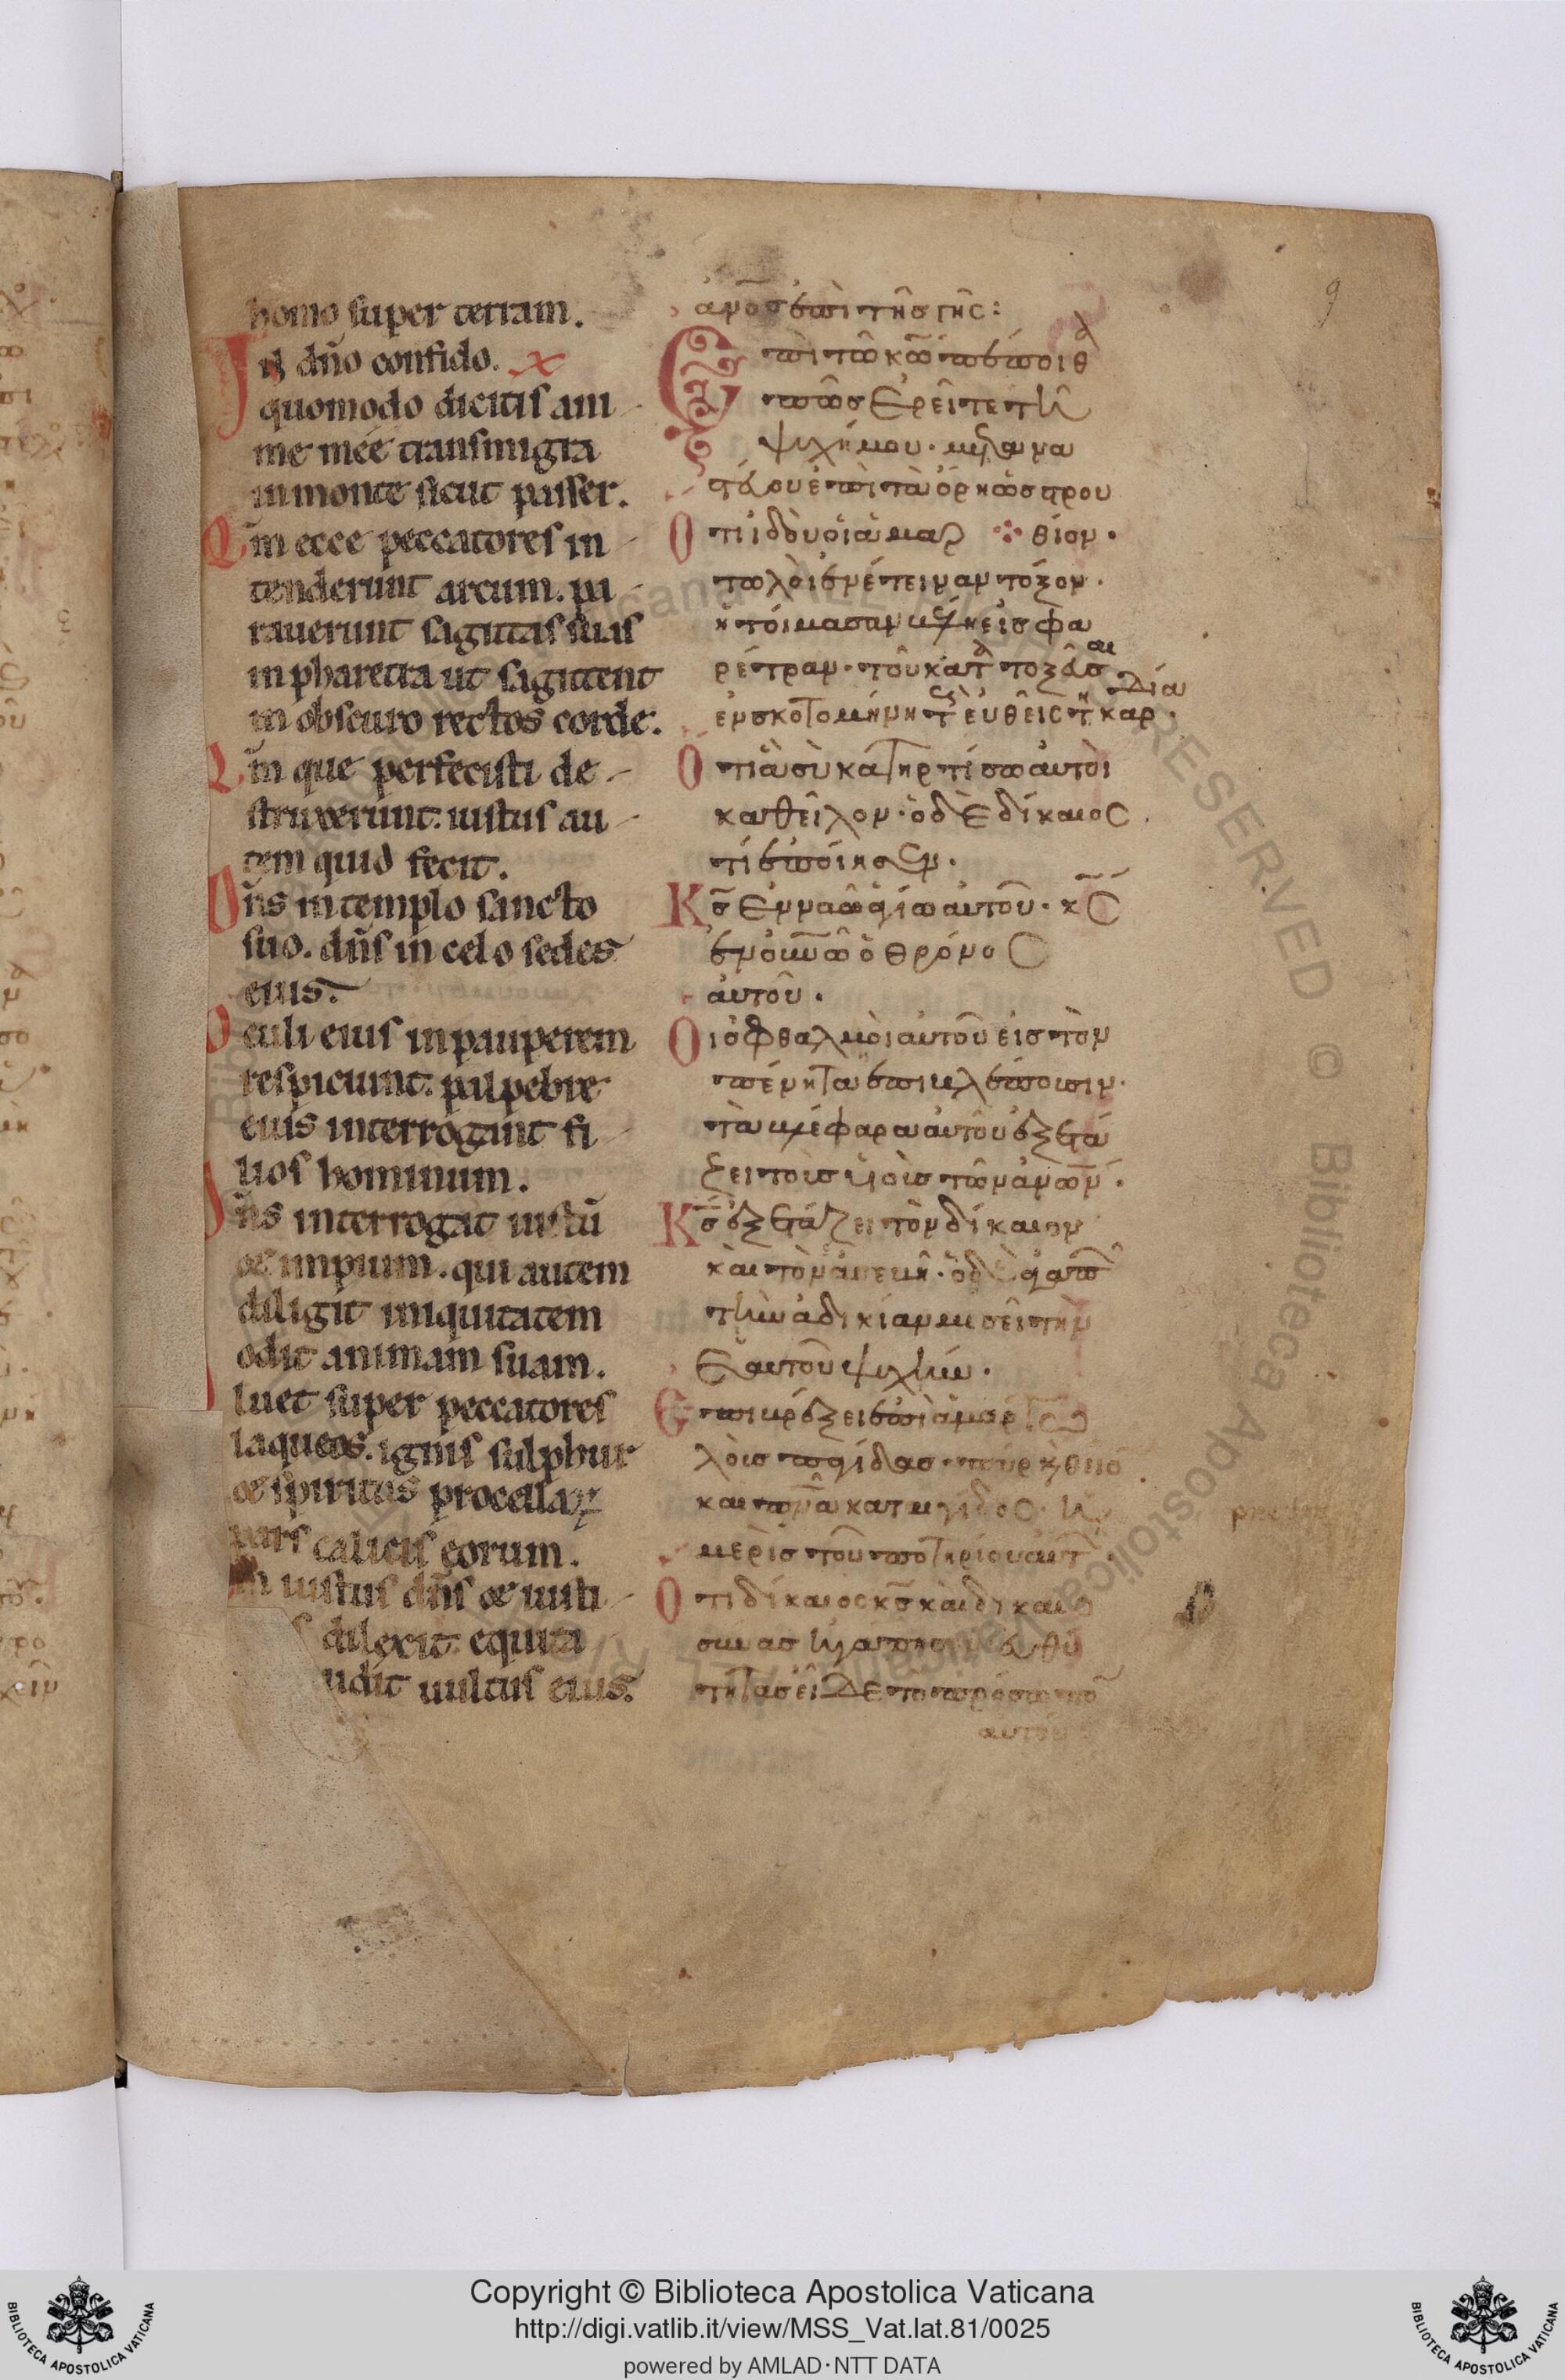 homo super terram.
In dño confido. x
quomodo dicitis ani
me meę transmigra
in monte sicut passer.
Qm̃ ecce peccatores in
tenderunt arcum. pa
rauerunt sagittas suas
in pharetra ut sagittent
in obscuro rectos corde.
Qm̃ que perfecisti de
struxerunt. iustus au
tem quid fecit.
Dñs in templo sancto
suo. dñs in celo sedes
eius.
Oculi eius in pauperem
respiciunt. palpebre
eius interrogant fi
lios hominum.
Dñs interrogat iustũ
et impium. qui autem
diligit iniquitatem
odit animam suam.
luet super peccatores
laqueos. ignis sulphur
et spiritus procellaꝝ
pars calicis eorum.
iustus dñs et iusti
dilexit. equita
udit uultus eius.
9
ἀν̅ο̅σ ἐπὶ τῆσ γῆς:
Ἐπὶ τῶ κ̅ω̅ πέποιθα
πῶσ ἐρεῖτε τῆ
ψυχῆ μου. μετανα
στεύου ἐπὶ τὰ ὄρη ὡσ στρου
θίον.
Ὅτι ἰδοὺ οἱ ἁμαρ
τωλοὶ ἐνέτειναν τόξον.
ἡτοίμασαν βέλη εἰσ φα
ρέτραν. τοῦ κατατοξεῦσαι
ἐν σκοτομήνη τοὺς εὐθεῖς τῆ καρδία.
Ὅτι ἃ σὺ κατηρτίσω αὐτοὶ
καθεῖλον. ὁ δὲ δίκαιος
τί ἐποίησεν.
Κ̅σ̅ ἐν ναῶ ἁγίω αὐτοῦ. κ̅ς̅
ἐν ο̅υ̅ν̅ω̅ ὁ θρόνος
αὐτοῦ.
Οἱ ὀφθαλμοὶ αὐτοῦ εἰσ τὸν
πένητα ἐπιβλέπουσιν.
τὰ βλέφαρα αὐτοῦ ἐξετά
ζει τοὺσ υἱοὺσ τῶν ἀν̅ω̅ν̅.
Κ̅σ̅ ἐξετάζει τὸν δίκαιον
καὶ τὸν ἀσεβῆ. ὁ δὲ ἀγαπῶν
τὴν ἀδικίαν μισεῖ τὴν
ἑαυτοῦ ψυχήν.
Ἐπιβρέξει ἐπὶ ἁμαρτω
λοὺσ παγίδασ. πῦρ κ̀ θεῖο
καὶ π̅ν̅α̅ καταιγίδος. ἡ
μερὶσ τοῦ ποτηρίου αὐτῶν.
Ὅτι δίκαιος κ̅σ̅ καὶ δικαιο
σύνασ ἠγάπησεν. εὐθύ
τητασ εἶδε τὸ πρόσωπον
αὐτοῦ
Copyright © Biblioteca Apostolica Vaticana
http://digi.vatlib.it/view/MSS_Vat.lat.81/0025
powered by AMLAD·NTT DATA
BIBLIOTECA APOSTOLICA VATICANA
BIBLIOTECA APOSTOLICA VATICANA